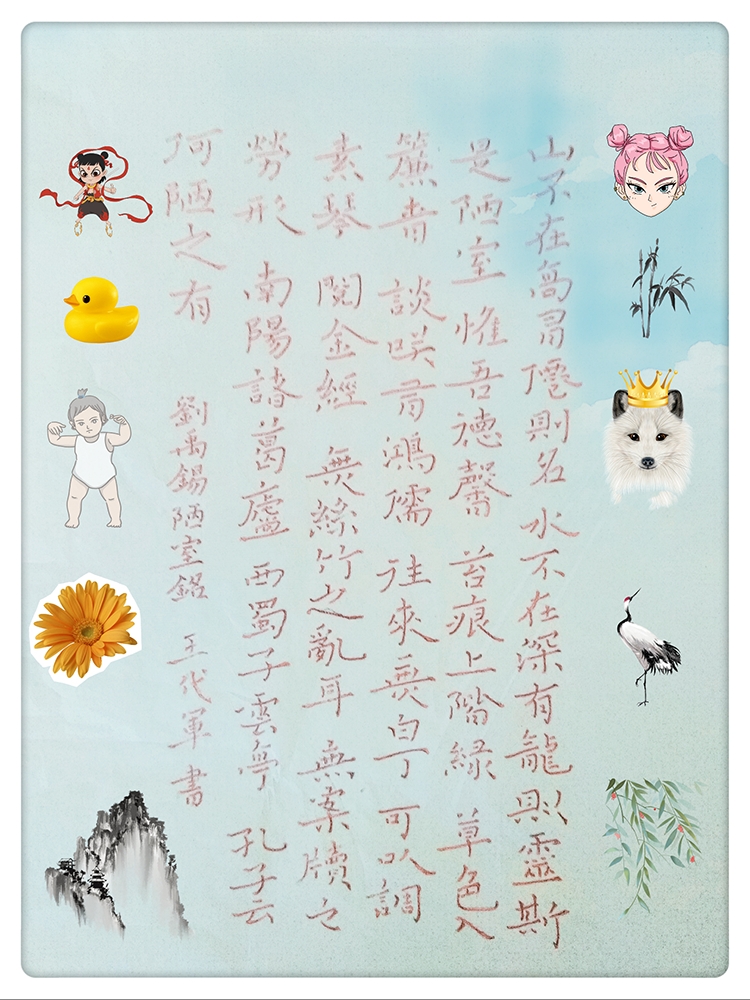 山不在高有僊則名水不在深有龍則靈斯
是陋室惟吾德馨苔痕上階緑草色入
簾青談咲有鴻儒往來無白丁可以調
素琴閱金經無絲竹之亂耳無案牘之
勞形南陽諸葛廬西蜀子雲亭孔子云
何陋之有
劉禹錫陋室銘王代軍書